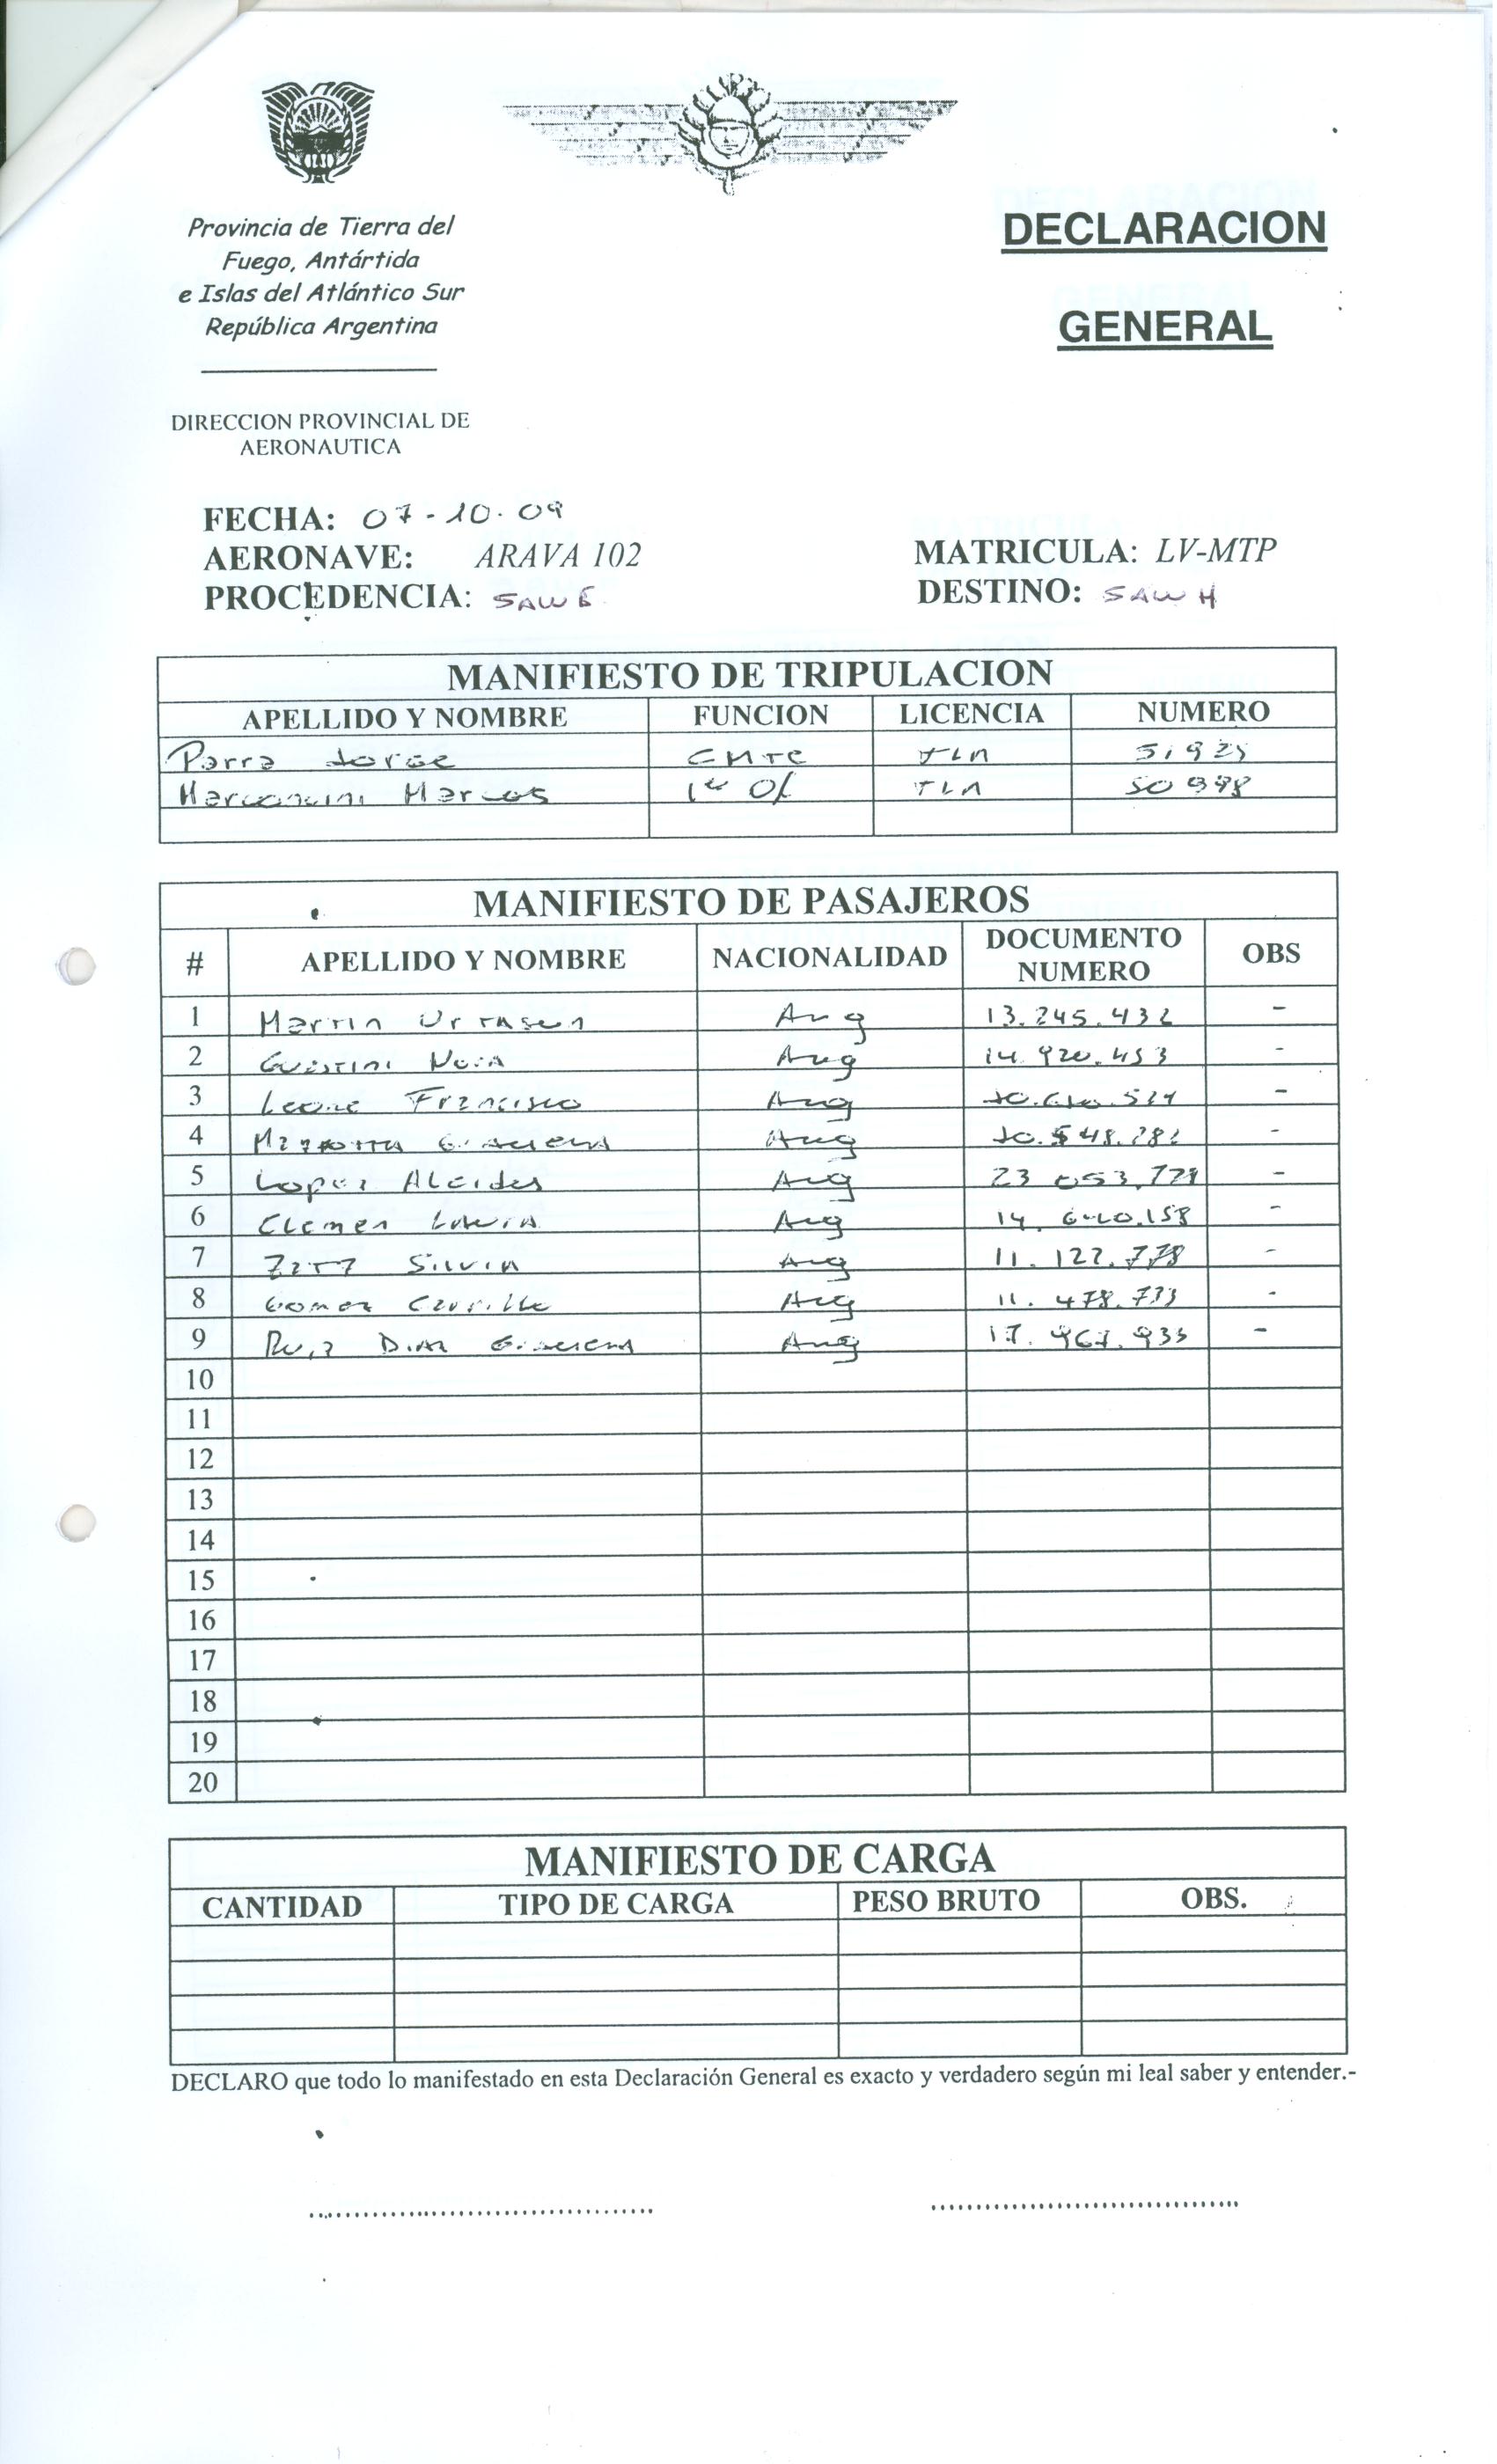 Provincia de Tierra del
Fuego, Antártida
e Islas del Atlántico Sur
República Argentina
DECLARACION
GENERAL
DIRECCION PROVINCIAL DE
AERONAUTICA
FECHA: 07-10-09
AERONAVE: ARAVA 102 MATRICULA: LV-MTP
PROCEDENCIA: SAWE DESTINO: SAWH
MANIFIESTO DE TRIPULACION
APELLIDO Y NOMBRE FUNCION LICENCIA NUMERO
Parra Jorge CMTE TLA
Marcos 1er Of TLA
MANIFIESTO DE PASAJEROS
# APELLIDO Y NOMBRE NACIONALIDAD DOCUMENTO NUMERO OBS
1 Martin Arg 13.245.432 -
2 Arg 14.920.453 -
3 Leone Francisco Arg -
4 Graciela Arg -
5 Lopez Alcides Arg 23 053.771 -
6 Clemen Laura Arg -
7 Silvia Arg 11.122.778 -
8 Gomez Arg -
9 Ruiz Diaz Graciela Arg -
10
11
12
13
14
15
16
17
18
19
20
MANIFIESTO DE CARGA
CANTIDAD TIPO DE CARGA PESO BRUTO OBS.
DECLARO que todo lo manifestado en esta Declaración General es exacto y verdadero según mi leal saber y entender.-